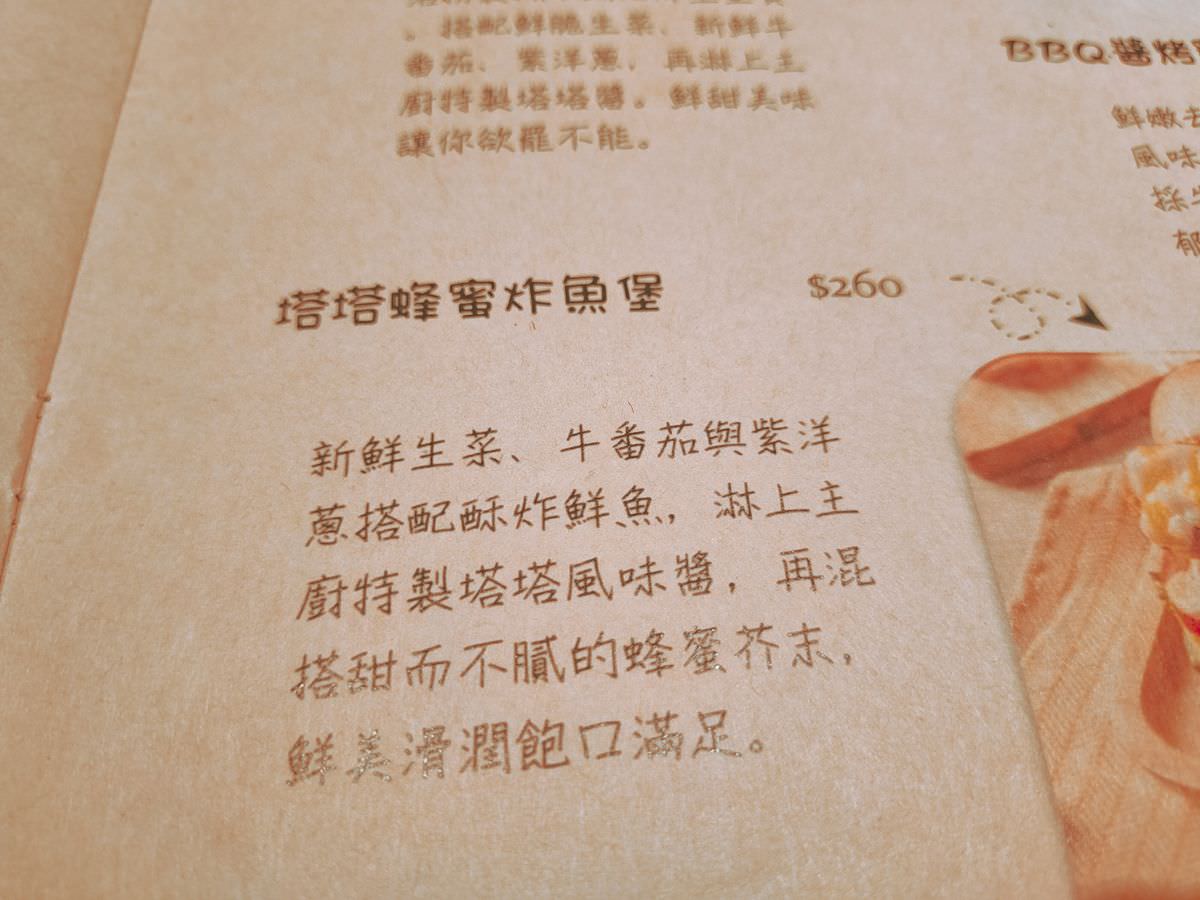 、搭配鮮脆生菜、新鮮牛
番茄、紫洋蔥，再淋上主
廚特製塔塔醬。鮮甜美味
讓你欲罷不能。
BBQ醬烤
鮮嫩去
風味
採
郁
塔塔蜂蜜炸魚堡 $260
新鮮生菜、牛番茄與紫洋
蔥搭配酥炸鮮魚，淋上主
廚特製塔塔風味醬，再混
搭甜而不膩的蜂蜜芥末，
鮮美滑潤飽口滿足。